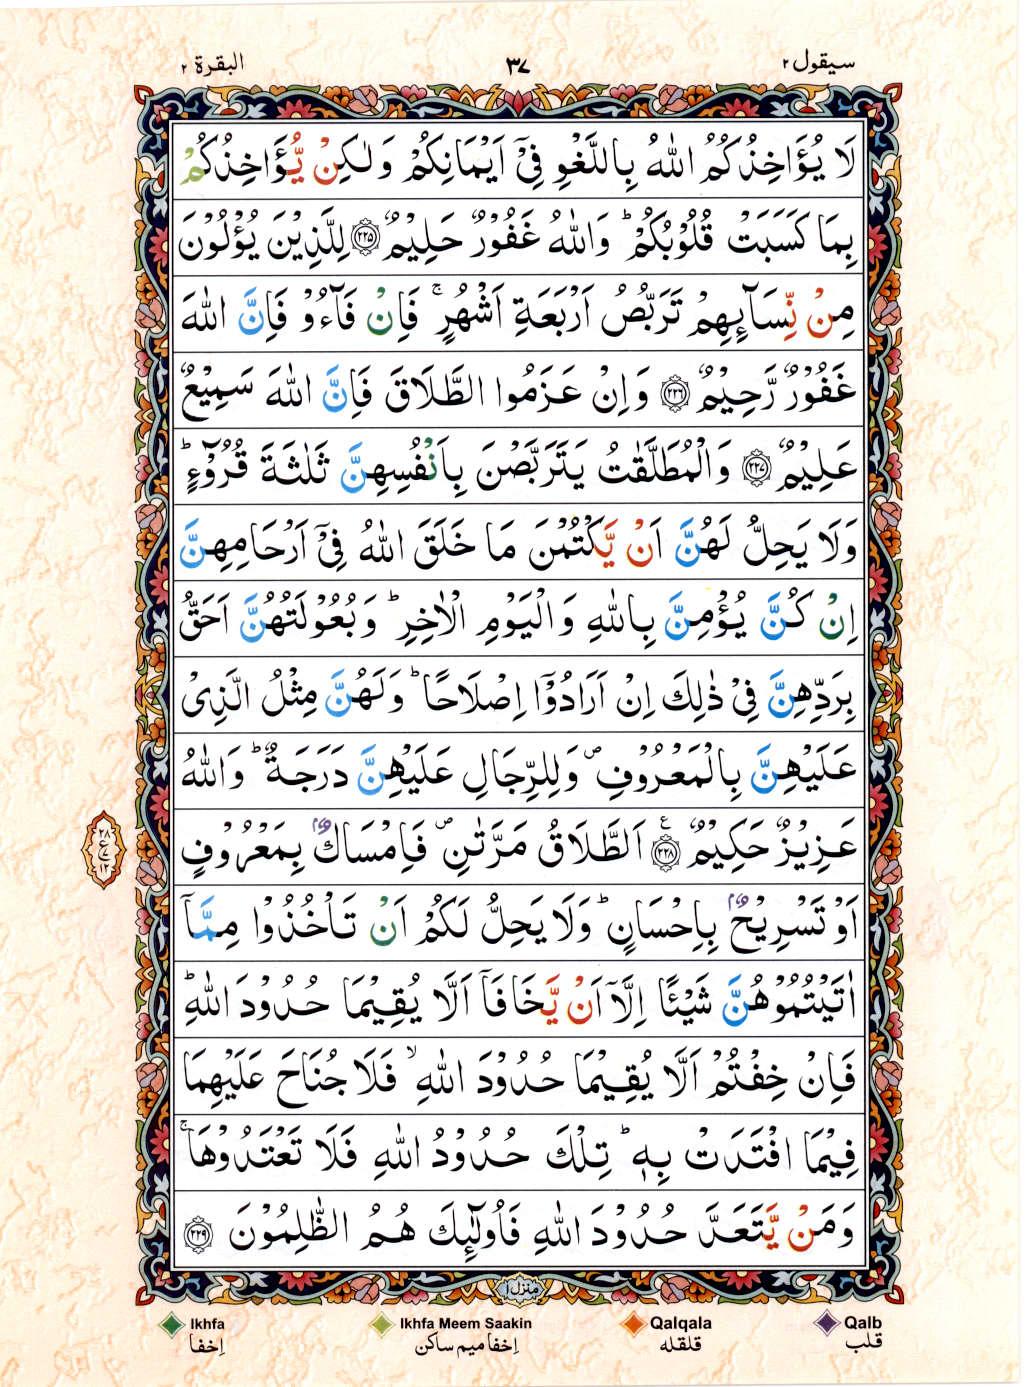 البقرة ٢
٣٧
سيقول ٢
لَا يُؤَاخِذُكُمُ اللّٰهُ بِاللَّغْوِ فِيْٓ اَيْمَانِكُمْ وَلٰكِنْ يُّؤَاخِذُكُمْ
بِمَا كَسَبَتْ قُلُوْبُكُمْ ؕ وَاللّٰهُ غَفُوْرٌ حَلِيْمٌ ﴿٢٢٥﴾ لِلَّذِيْنَ يُؤْلُوْنَ
مِنْ نِّسَآئِهِمْ تَرَبُّصُ اَرْبَعَةِ اَشْهُرٍ ۚ فَاِنْ فَآءُوْ فَاِنَّ اللّٰهَ
غَفُوْرٌ رَّحِيْمٌ ﴿٢٢٦﴾ وَاِنْ عَزَمُوا الطَّلَاقَ فَاِنَّ اللّٰهَ سَمِيْعٌ
عَلِيْمٌ ﴿٢٢٧﴾ وَالْمُطَلَّقٰتُ يَتَرَبَّصْنَ بِاَنْفُسِهِنَّ ثَلٰثَةَ قُرُوْٓءٍ ؕ
وَلَا يَحِلُّ لَهُنَّ اَنْ يَّكْتُمْنَ مَا خَلَقَ اللّٰهُ فِيْٓ اَرْحَامِهِنَّ
اِنْ كُنَّ يُؤْمِنَّ بِاللّٰهِ وَالْيَوْمِ الْاٰخِرِ ؕ وَبُعُوْلَتُهُنَّ اَحَقُّ
بِرَدِّهِنَّ فِيْ ذٰلِكَ اِنْ اَرَادُوْٓا اِصْلَاحًا ؕ وَلَهُنَّ مِثْلُ الَّذِيْ
عَلَيْهِنَّ بِالْمَعْرُوْفِ ۪ وَلِلرِّجَالِ عَلَيْهِنَّ دَرَجَةٌ ؕ وَاللّٰهُ
عَزِيْزٌ حَكِيْمٌ ﴿٢٢٨﴾ اَلطَّلَاقُ مَرَّتٰنِ ۪ فَاِمْسَاكٌۢ بِمَعْرُوْفٍ
اَوْ تَسْرِيْحٌۢ بِاِحْسَانٍ ؕ وَلَا يَحِلُّ لَكُمْ اَنْ تَأْخُذُوْا مِمَّآ
اٰتَيْتُمُوْهُنَّ شَيْئًا اِلَّآ اَنْ يَّخَافَآ اَلَّا يُقِيْمَا حُدُوْدَ اللّٰهِ ؕ
فَاِنْ خِفْتُمْ اَلَّا يُقِيْمَا حُدُوْدَ اللّٰهِ ۙ فَلَا جُنَاحَ عَلَيْهِمَا
فِيْمَا افْتَدَتْ بِهٖ ؕ تِلْكَ حُدُوْدُ اللّٰهِ فَلَا تَعْتَدُوْهَا ۚ
وَمَنْ يَّتَعَدَّ حُدُوْدَ اللّٰهِ فَاُولٰٓئِكَ هُمُ الظّٰلِمُوْنَ ﴿٢٢٩﴾
٢٨
ع
١٢
منزل ١
Ikhfa
Ikhfa Meem Saakin
Qalqala
Qalb
اِخفا
اِخفا میم ساکن
قلقله
قلب